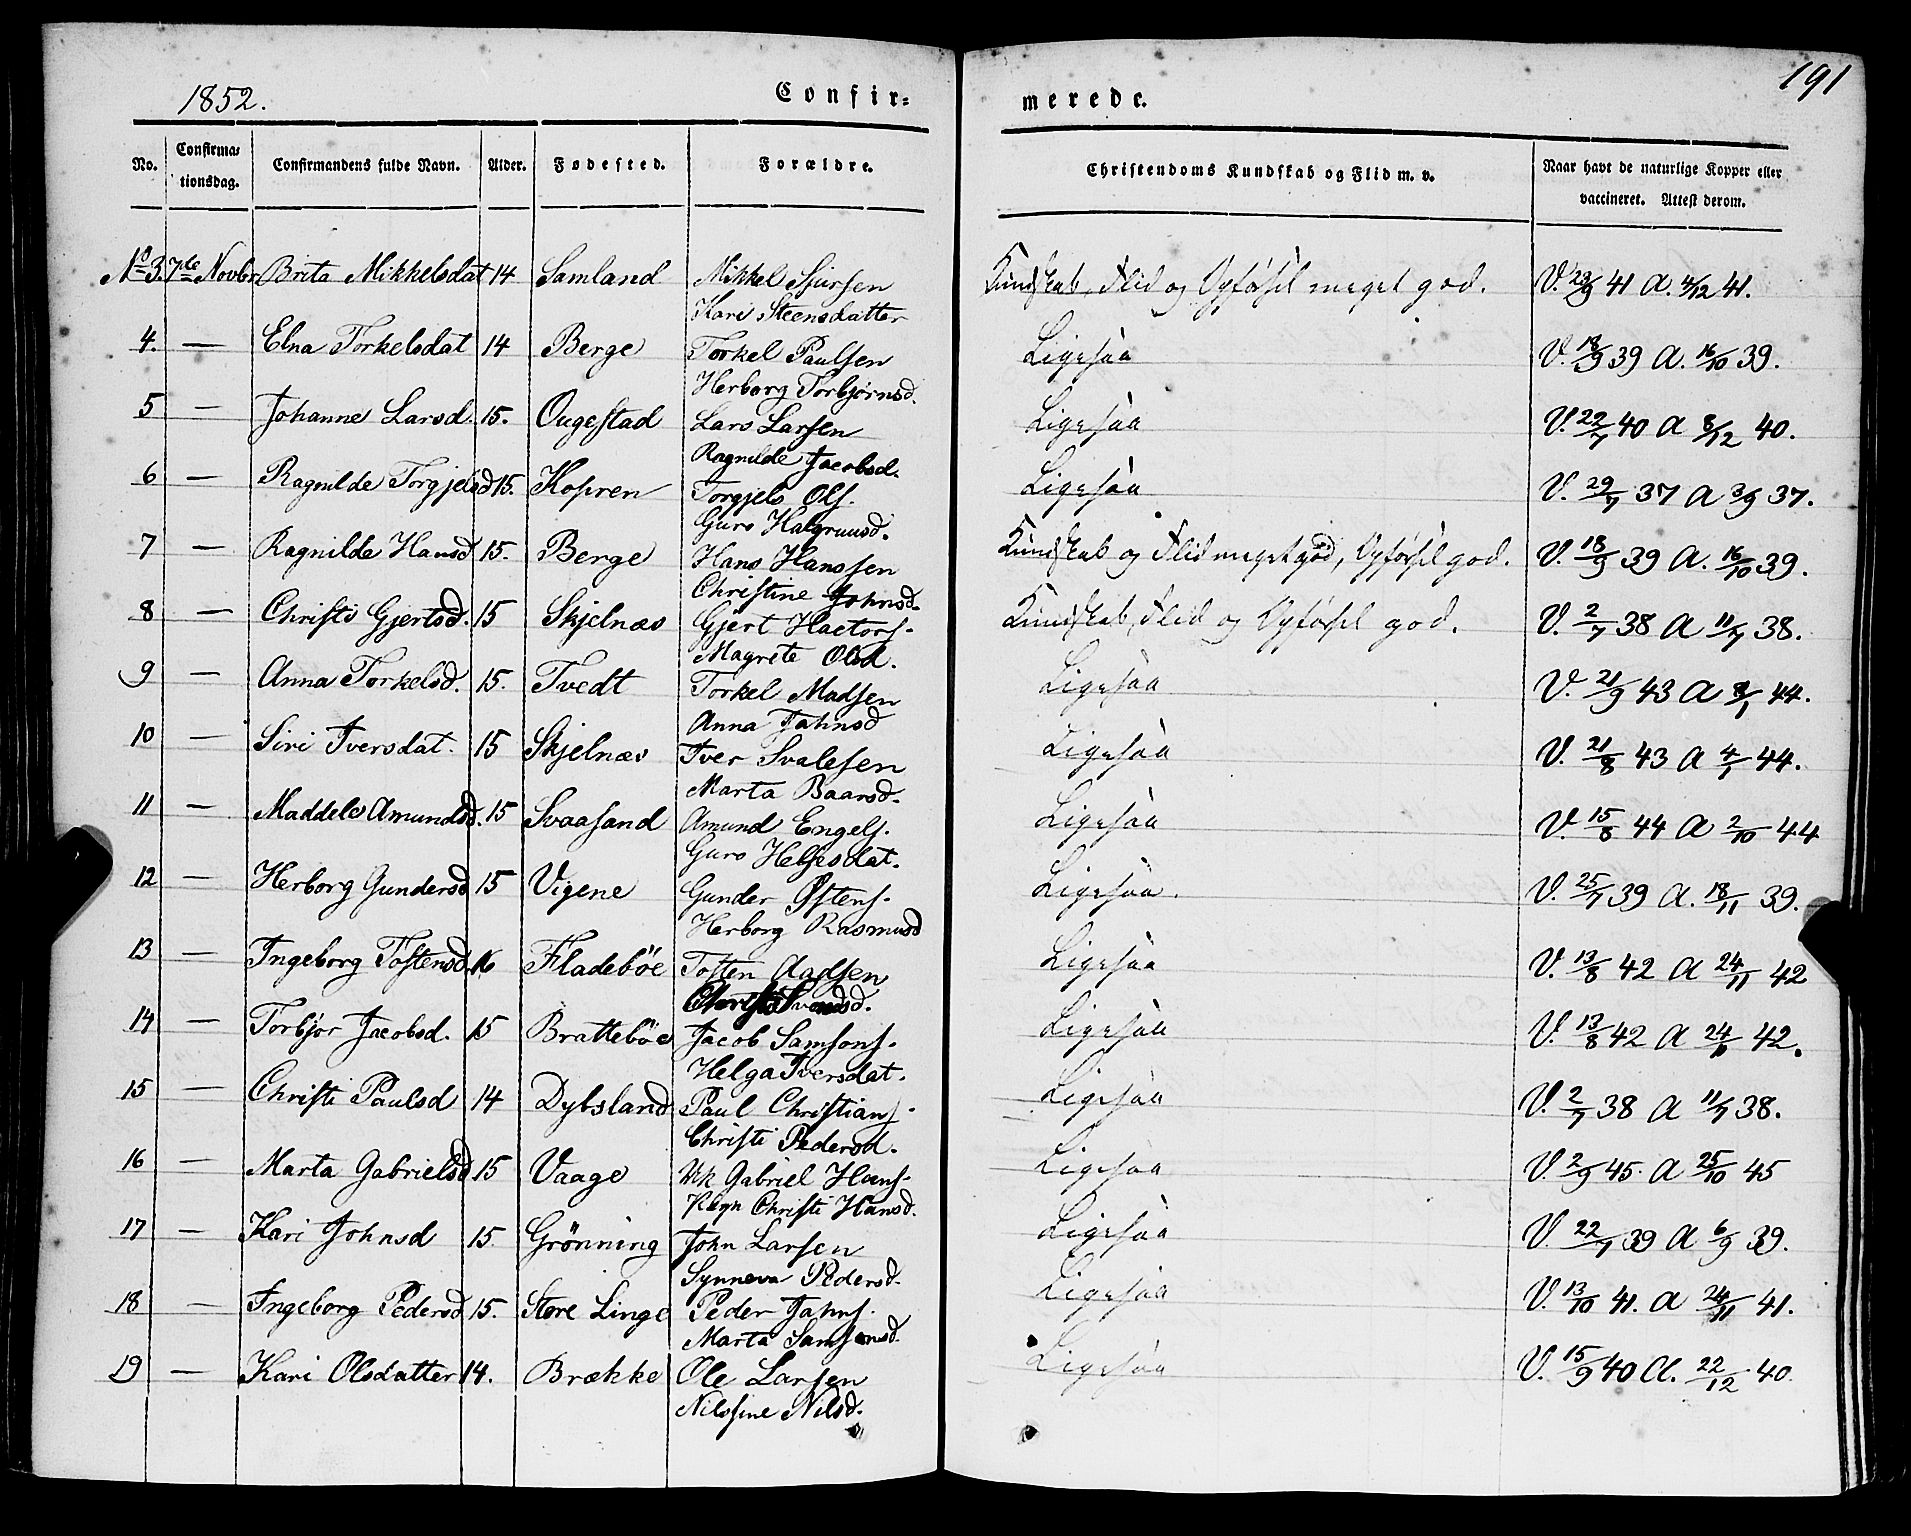 1852.
Confir=
merede.
191
No.
Confirma=
tionsdag.
Confirmandens fulde Navn.
Alder.
Fødested.
Forældre.
Christendoms Kundskab og Flid m. v.
Naar havt de naturlige Kopper eller
vaccineret. Attest derom.
No 3. 7de Novbr Brita Mikkelsdat 14 Samland Mikkel Sjursen Kundskab, Flid og Opførsel meget god. V. 23/9 41 A. 4/12 41.
Kari Steensdatter
4. — Elna Torkelsdat 14 Berge Torkel Paulsen Ligesaa V. 18/9 39 A. 16/10 39.
Herborg Torbjørnsd.
5 — Johanne Larsd. 15. Ougestad Lars Larsen Ligesaa V. 22/7 40 A 8/12 40.
Ragnilde Jacobsd.
6 — Ragnilde Torgjelsd 15. Kopren Torgjels Ols. Ligesaa V. 29/7 37 A 3/9 37.
Guro
7 — Ragnilde Hansd 15. Berge Hans Hanssen Kundskab og Flid meget god, Opførsel god. V. 18/9 39 A. 16/10 39.
Christine Johnsd.
8 — Christi Gjertsd. 15 Skjelnæs Gjert Hactors. Kundskab, Flid og Opførsel god. V. 2/7 38 A 11/7 38.
Magrete Olsd.
9 — Anna Torkelsd. 15. Tvedt Torkel Madsen Ligesaa V. 21/9 43 A /1 44.
Anna Johnsd
10 — Siri Iversdat. 15 Skjelnæs Iver Svalesen Ligesaa V. 21/8 43 A 4/1 44.
Marta Baarsd.
11 — Maddele Amundsd. 15 Svaasand Amund Engels. Ligesaa V. 15/8 44 A 2/10 44
Guro Heljesdat.
12 — Herborg Gundersd 15 Vigene Gunder Østens. Ligesaa. V. 25/7 39 A. 18/11 39.
Herborg Rasmusd
13 — Ingeborg Tostensd. 16 Fladeböe Tosten Aadsen Ligesaa V. 13/8 42 A 24/11 42
Christi Svendsd.
14 — Torbjør Jacobsd. 15 Brattebøe Jacob Samsons. Ligesaa V. 13/8 42 A 24/11 42.
Helga Iversdat.
15 — Christi Paulsd 14 Dybsland Paul Christians. Ligesaa V. 2/7 38 A 11/7 38.
Christi Pedersd.
16 — Marta Gabrielsd 15 Vaage Uk Gabriel Hans. Ligesaa V. 2/9 45. A 25/10 45
Pign Christi Hansd.
17 — Kari Johnsd 15. Grönning John Larsen Ligesaa V. 22/7 39 A 6/9 39.
Synneva Pedersd.
18 — Ingeborg Pedersd 15. Store Linge Peder Johns. Ligesaa V. 13/10 41. A 24/11 41.
Marta Samsonsd.
19 — Kari Olsdatter 14. Brække Ole Larsen Ligesaa V. 15/9 40 A. 22/12 40.
Nilssine Nilsd.